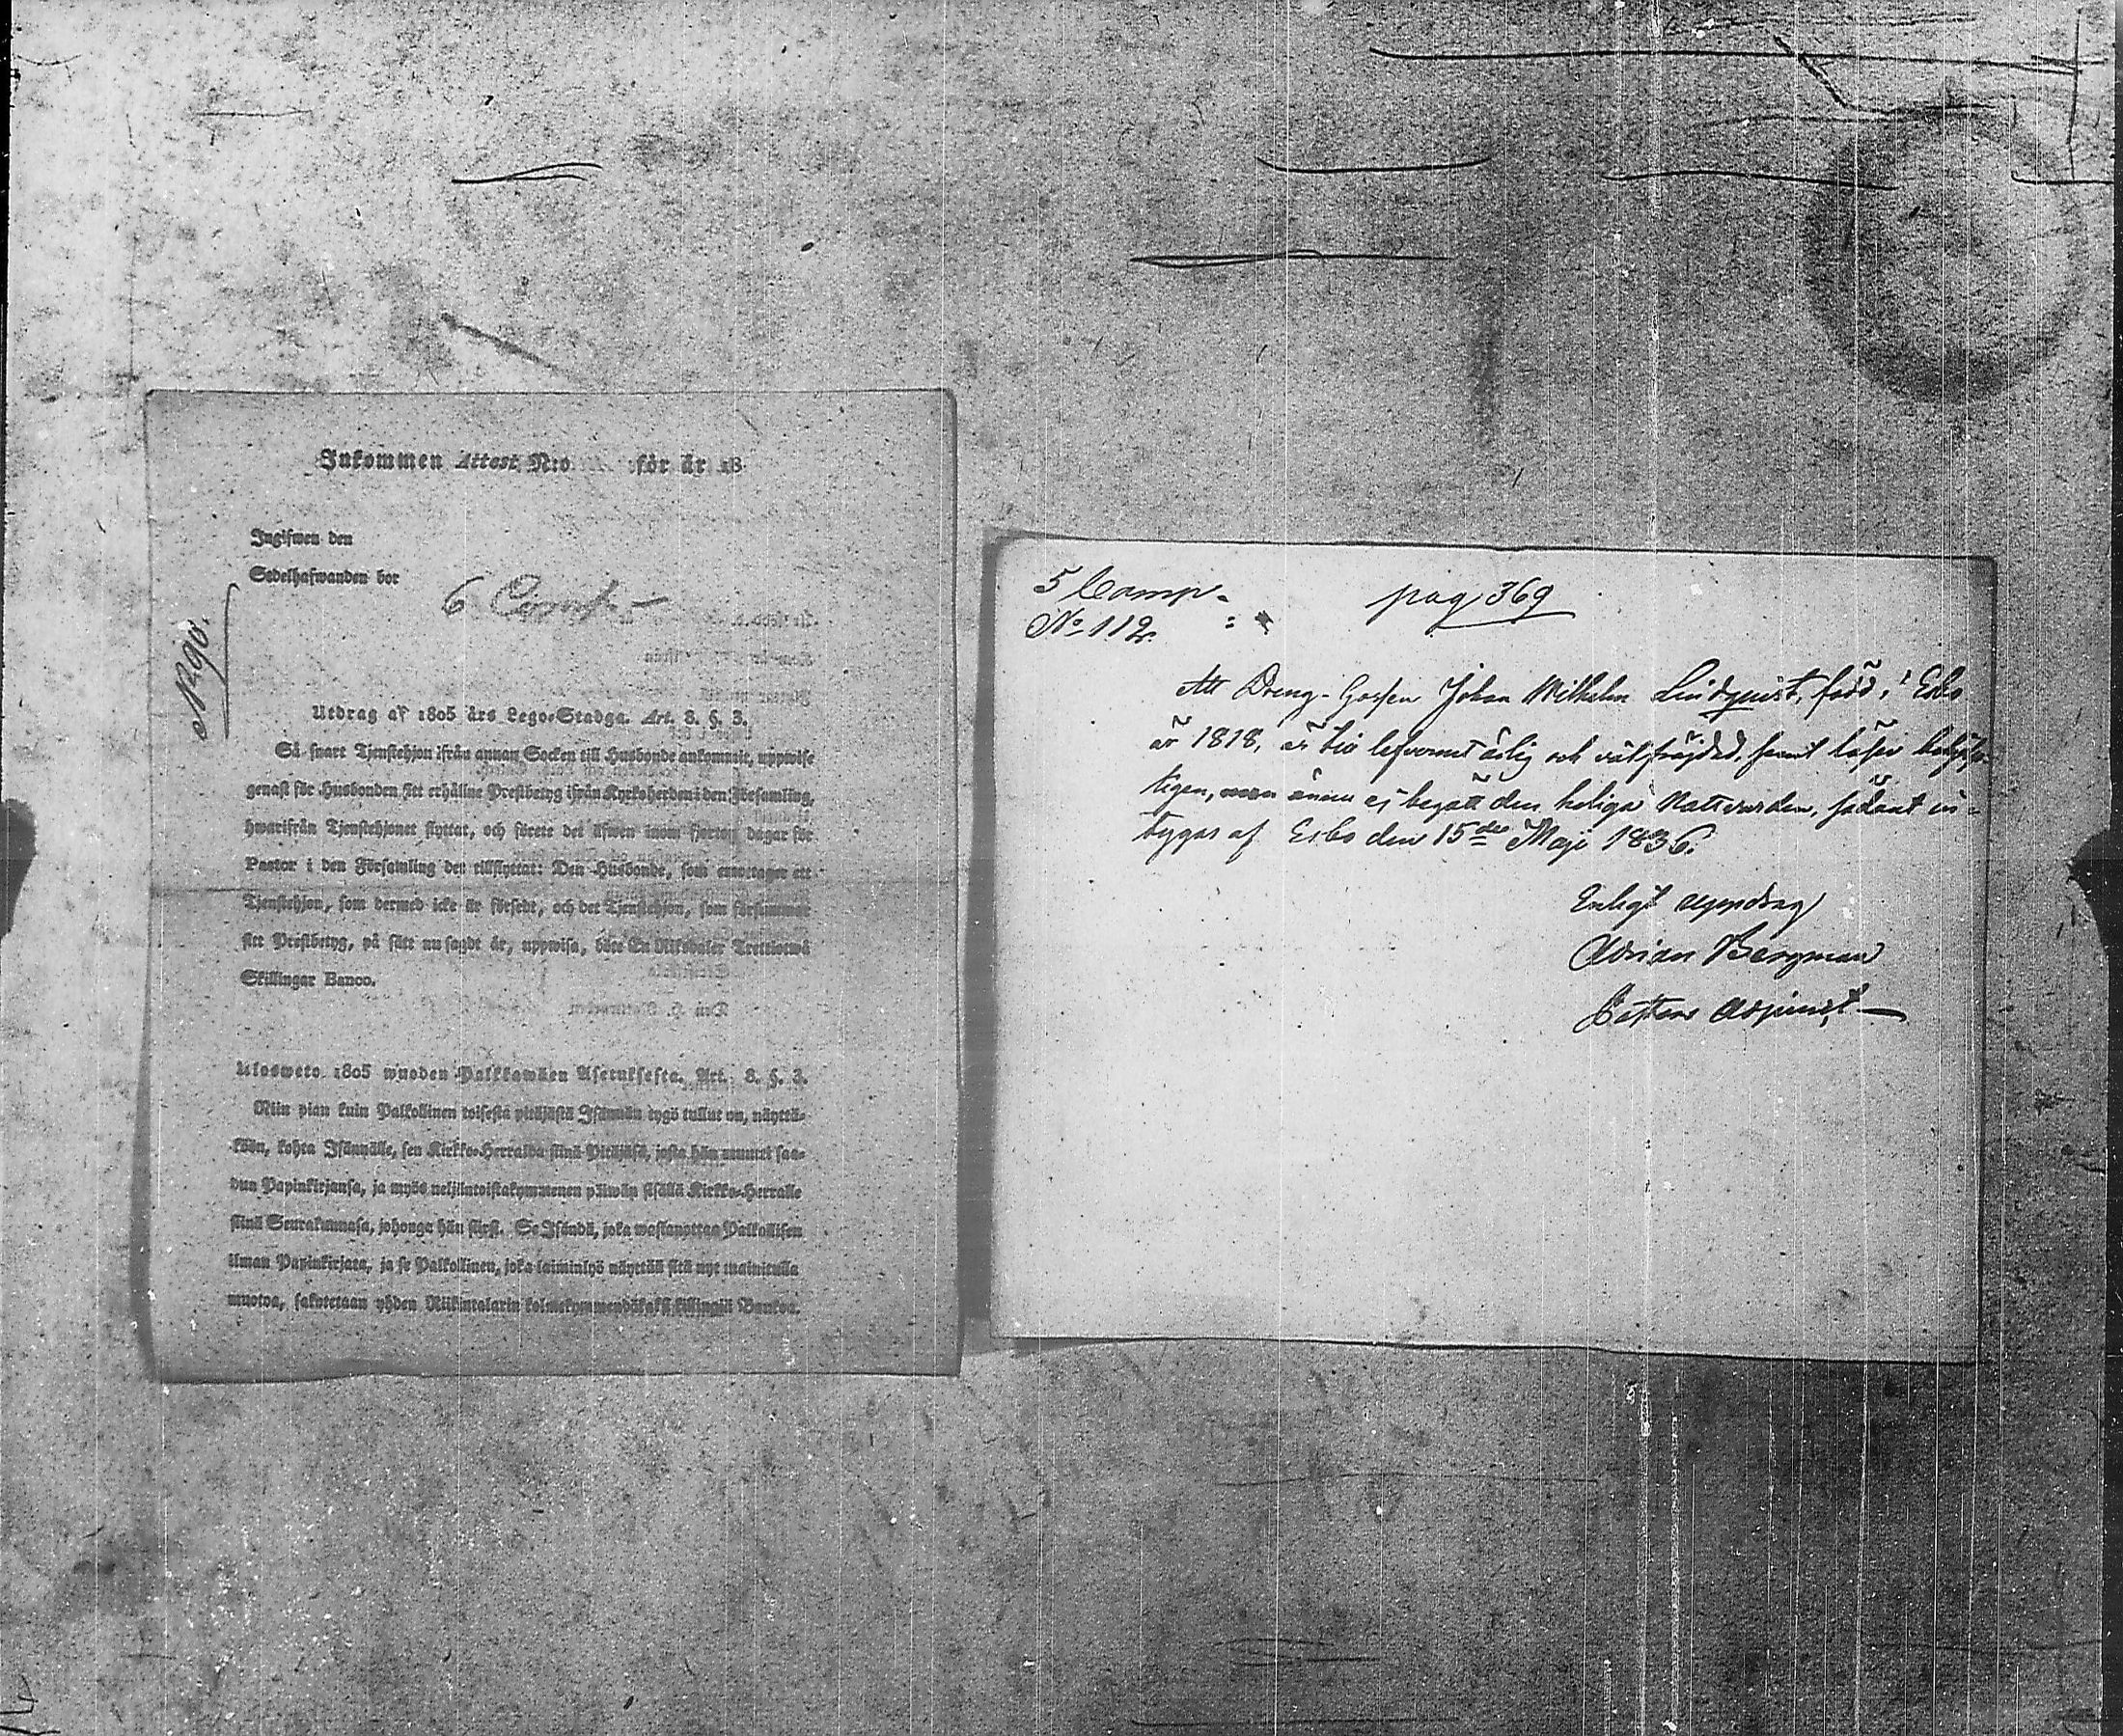 Inkommen Attest N:o för år 18
Ingifwen den
Sedelhafwanden bor
6 Comp.
N 90.
Utdrag af 1805 års Lego-Stadga. Art. 8. §. 3.
Så snart Tjenstehjon ifrån annan Socken till Husbonde ankommit, uppwise
genast för Husbonden sitt erhållne Prestbetyg ifrån Kyrkoherden i den Församling,
hwarifrån Tjenstehjonet flyttat, och förete det äfwen inom fjorton dagar för
Pastor i den Församling det tillflyttat: Den Husbonde, som emottager ett
Tjenstehjon, som dermed icke är försedt, och det Tjenstehjon, som försummar
sitt Prestbetyg, på sätt nu sagdt är, uppwisa, böte En Riksdaler Trettiotwå
Skillingar Banco.
Ulosweto 1805 wuoden Palkkawäen Asetuksesta. Art. 8. §. 3.
Niin pian kuin Palkollinen toisesta pitäjästä Isännän tygö tullut on, näyttä-
köön, kohta Isännälle, sen Kirkko-Herralda siinä Pitäjäsä, josta hän muutti saa-
dun Papinkirjansa, ja myös neljäntoistakymmenen päiwän sisällä Kirkko-Herralle
siinä Seurakunnasa, johonga hän siirsi. Se Isändä, joka wastanottaa Palkollisen
ilman Papinkirjata, ja se Palkollinen, joka laiminlyö näyttää sitä nyt mainitulla
muotoa, sakotetaan yhden Riikintalarin kolmekymmendäkaksi killingiä Bankoa.
5 Comp.
No 112.
pag 369
Att Dreng-Gossen Johan Wilhelm Lindquist, född i Esbo
år 1818, är till lefvernet ärlig och välfräjdad, samt läser
tigen, ännu ej begått den heliga Nattvarden, sådant in-
tygas af Esbo den 15de Maji 1836.
Enligt uppdrag
Adrian Bergman
Pastors Adjunct